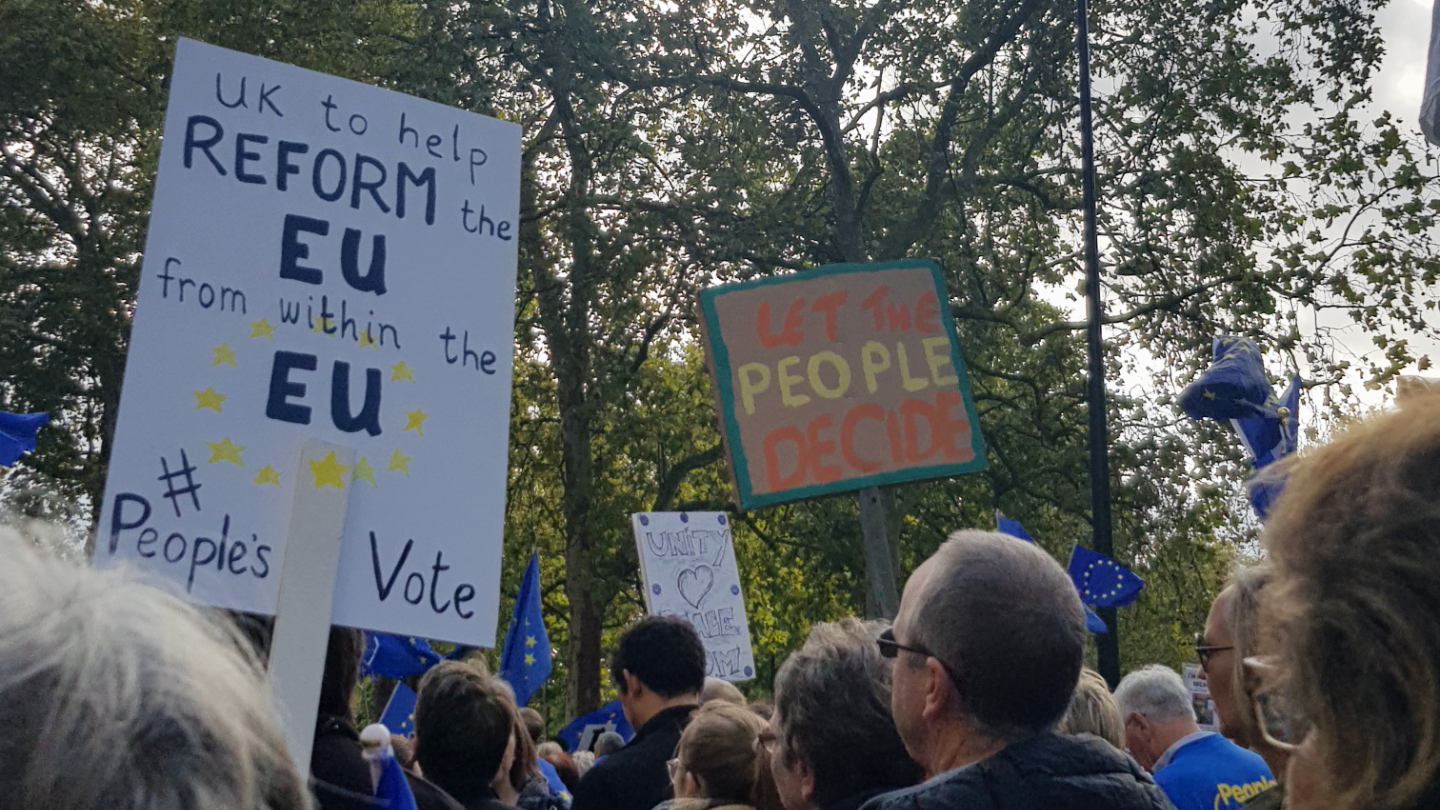 UK to help
REFORM the
EU
from within the
EU
#
People's Vote
LET THE
PEOPLE
DECIDE
UNITY
People